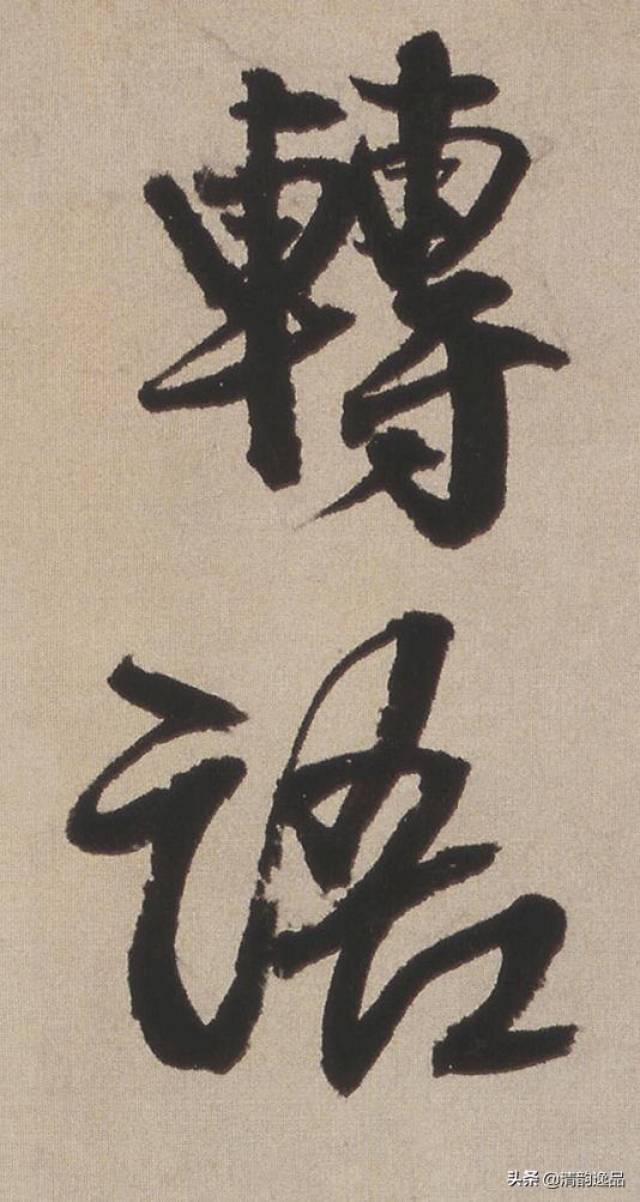 轉語
头条 @清韵逸品